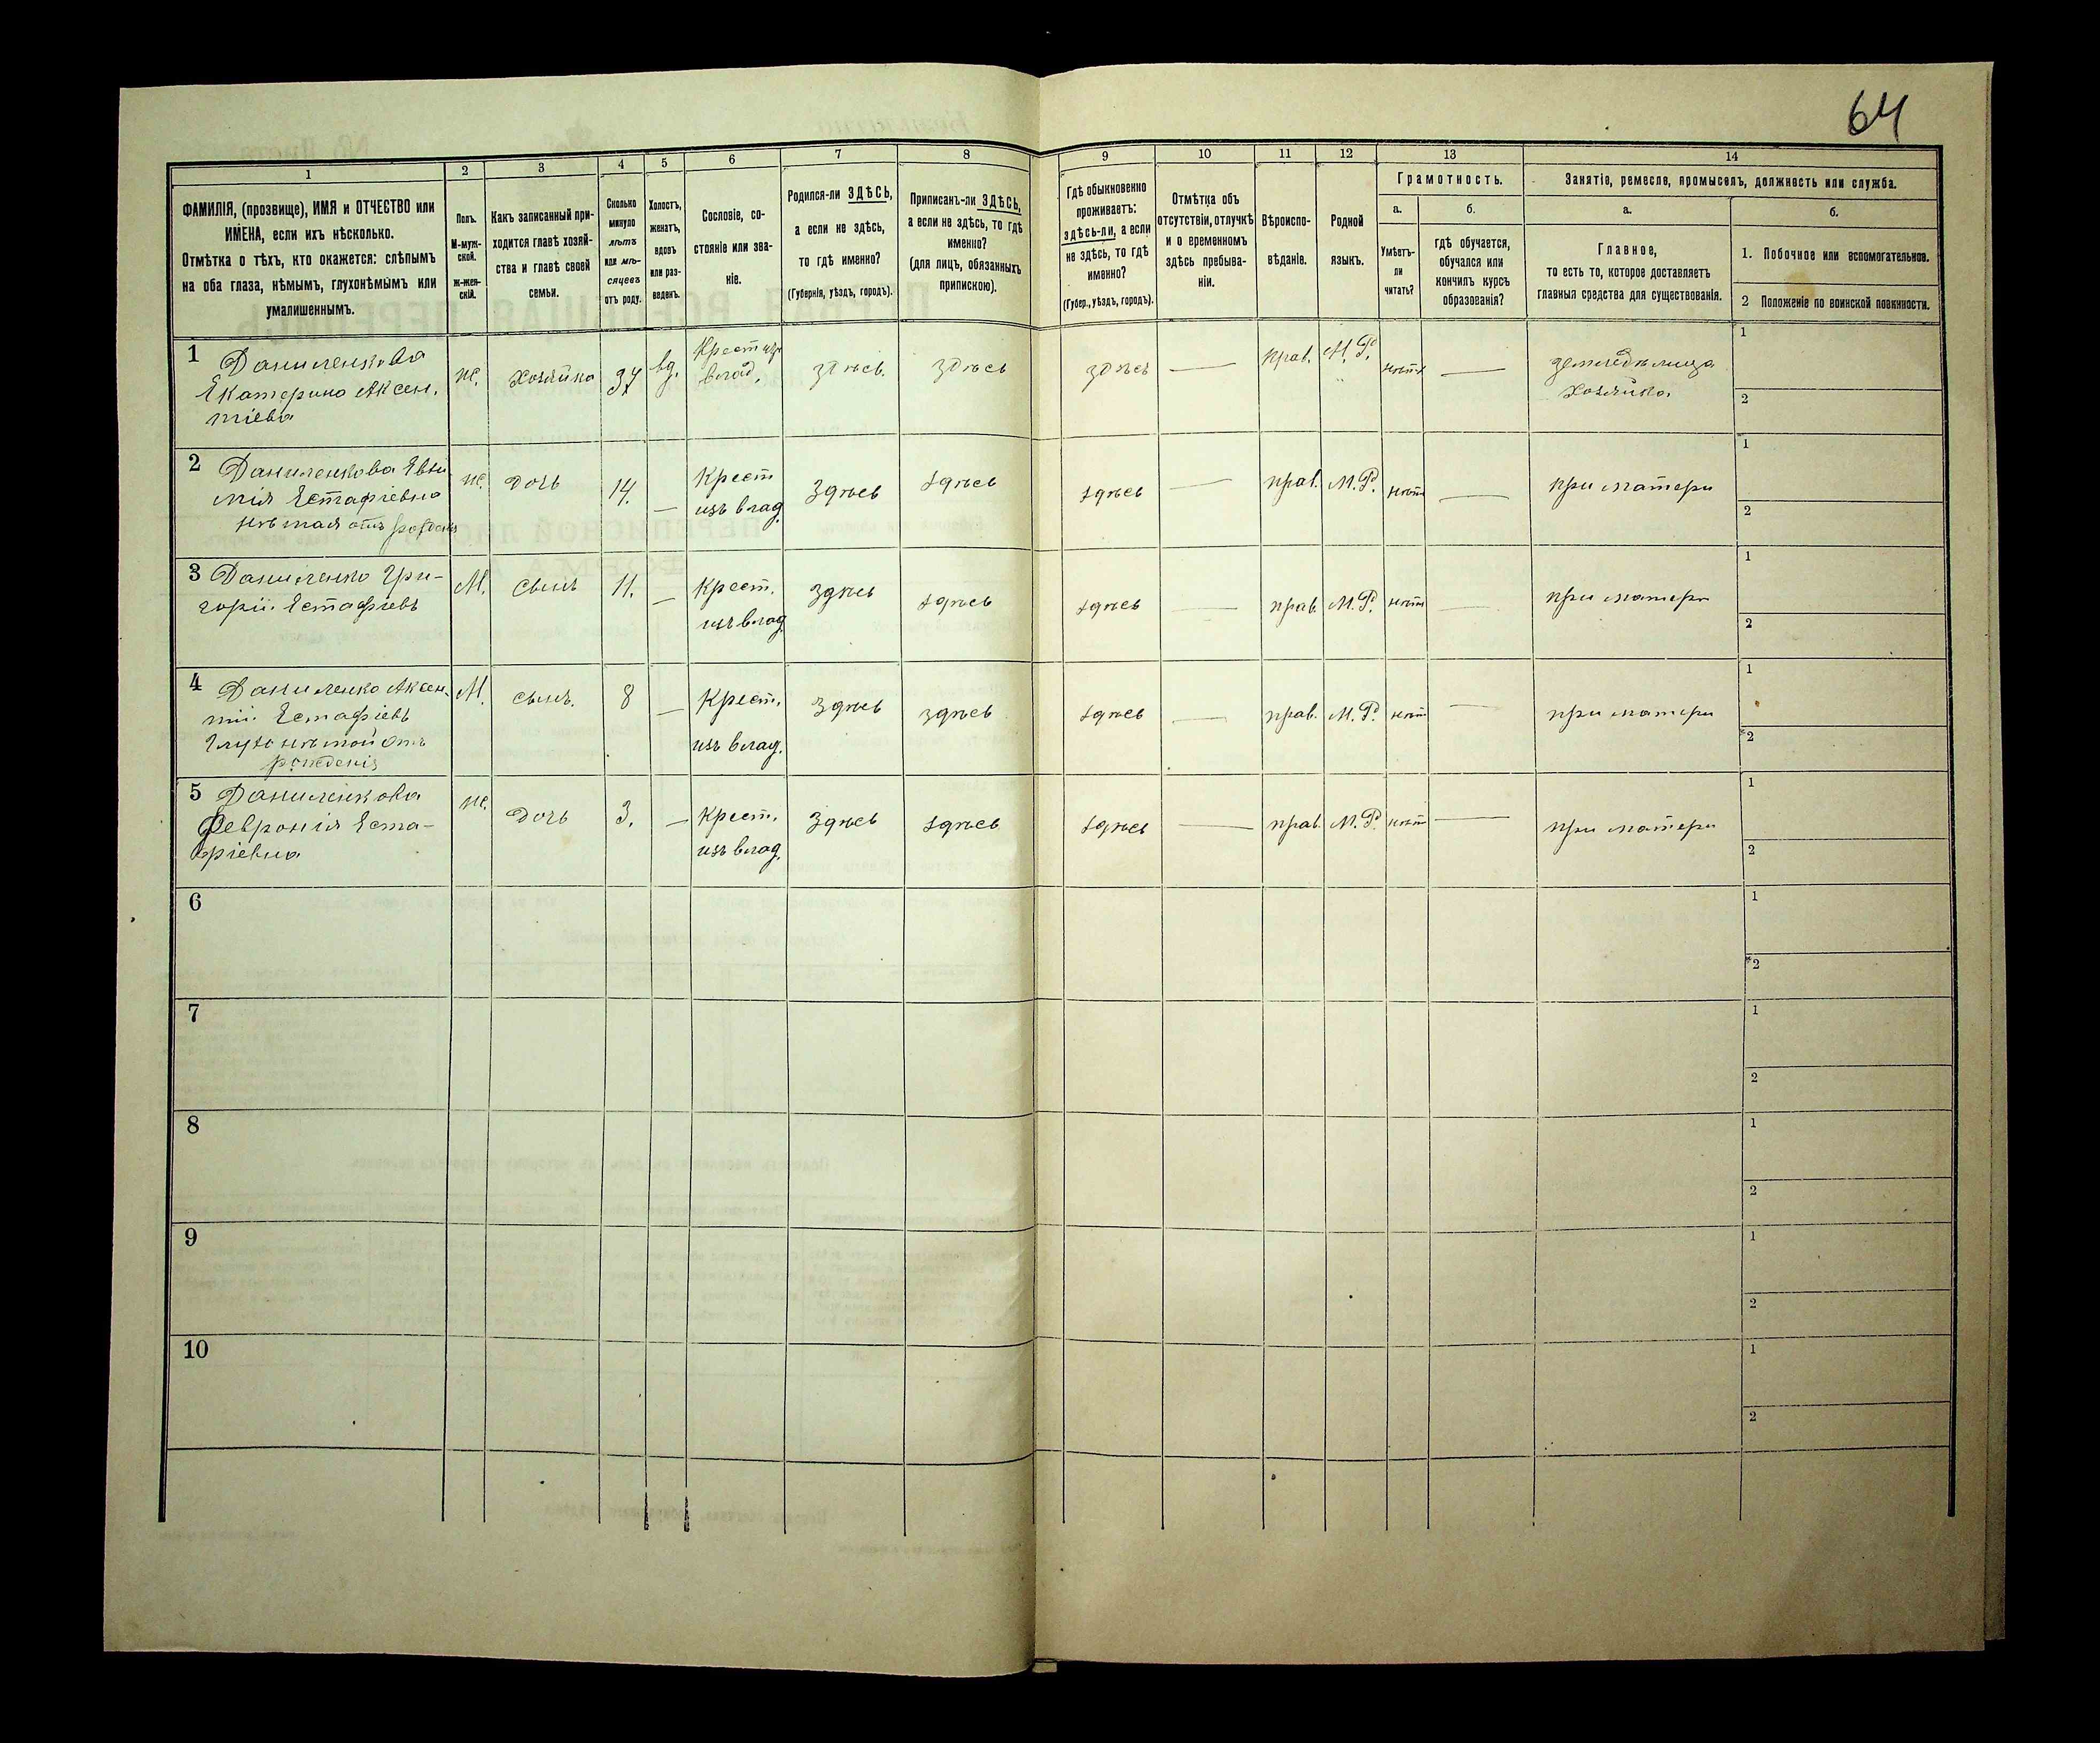 64
1
2
3
4
5
6
7
8
9
10
11
12
13
14
ФАМИЛІЯ, (прозвище), ИМЯ и ОТЧЕСТВО или
ИМЕНА, если ихъ нѣсколько.
Отмѣтка о тѣхъ, кто окажется: слѣпымъ
на оба глаза, нѣмымъ, глухонѣмымъ или
умалишеннымъ.
Полъ.
М-муж-
ской.
ж-жен-
скій.
Какъ записанный при-
ходится главѣ хозяй-
ства и главѣ своей
семьи.
Сколько
минуло
лѣтъ
или мѣ-
сяцевъ
отъ роду.
Холостъ,
женатъ,
вдовъ
или раз-
веденъ.
Сословіе, со-
стояніе или зва-
ніе.
Родился-ли ЗДѢСЬ,
а если не здѣсь,
то гдѣ именно?
(Губернія, уѣздъ, городъ).
Приписанъ-ли ЗДѢСЬ,
а если не здѣсь, то гдѣ
именно?
(для лицъ, обязанныхъ
припискою).
Гдѣ обыкновенно
проживаетъ:
здѣсь-ли, а если
не здѣсь, то гдѣ
именно?
(Губер., уѣздъ, городъ).
Отмѣтка объ
отсутствіи, отлучкѣ
и о временномъ
здѣсь пребыва-
ніи.
Вѣроиспо-
вѣданіе.
Родной
языкъ.
Грамотность.
а.
Умѣетъ-
ли
читать?
б.
гдѣ обучается,
обучался или
кончилъ курсъ
образованія?
Занятіе, ремесло, промыселъ, должность или служба.
а.
Главное,
то есть то, которое доставляетъ
главныя средства для существованія.
б.
1. Побочное или вспомогательное.
2 Положеніе по воинской повинности.
1 Даниленкова
Екатерина Аксен.
тіева
ж. Хозяйка 37 вд.
Крест изъ
влад.
здѣсь. здѣсь здѣсь — прав. М. Р. нѣтъ —
земледѣлица
хозяйка
1
2
2 Даниленкова Евѳи
мія Естафіевна
нѣмая отъ рожденія
ж. дочь 14. —
Крест
изъ влад.
здѣсь здѣсь здѣсь — прав. М. Р. нѣтъ — при матери
1
2
3 Даниленко Гри-
горій Естафіевъ
М. сынъ 11. —
Крест.
изъ влад.
здѣсь здѣсь здѣсь — прав. М. Р. нѣтъ — при матери
1
2
4 Даниленко Аксен.
тій Естафіевъ
Глухонѣмой отъ
рожденія
М. сынъ. 8 —
Крест.
изъ влад.
здѣсь здѣсь здѣсь — прав. М. Р. нѣтъ — при матери
1
2
5 Даниленкова
Февронія Еста-
фіевна
ж. дочь 3. —
Крест.
изъ влад.
здѣсь здѣсь здѣсь — прав. М. Р. нѣтъ — при матери
1
2
6
1
2
7
1
2
8
1
2
9
1
2
10
1
2